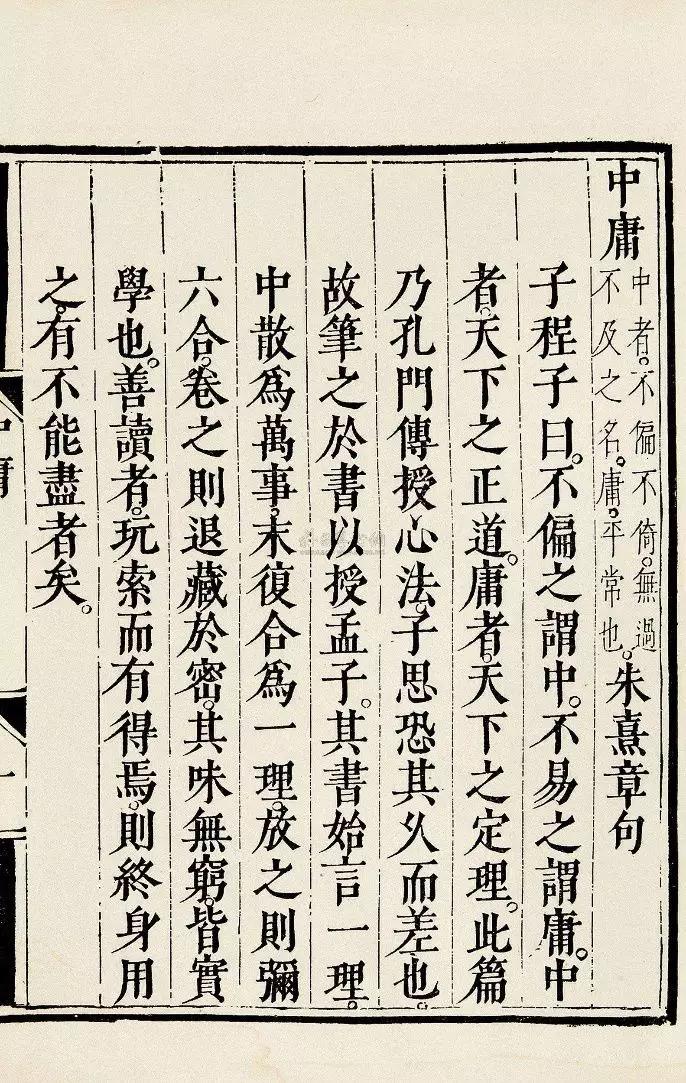 中庸 中者。不偏不倚。無過不及之名。庸。平常也。朱熹章句
子程子曰。不偏之謂中。不易之謂庸。中
者。天下之正道。庸者。天下之定理。此篇
乃孔門傳授心法。子思恐其久而差也。
故筆之於書以授孟子。其書始言一理。
中散為萬事。末復合為一理。放之則彌
六合。卷之則退藏於密。其味無窮。皆實
學也。善讀者。玩索而有得焉。則終身用
之。有不能盡者矣。
中庸
一